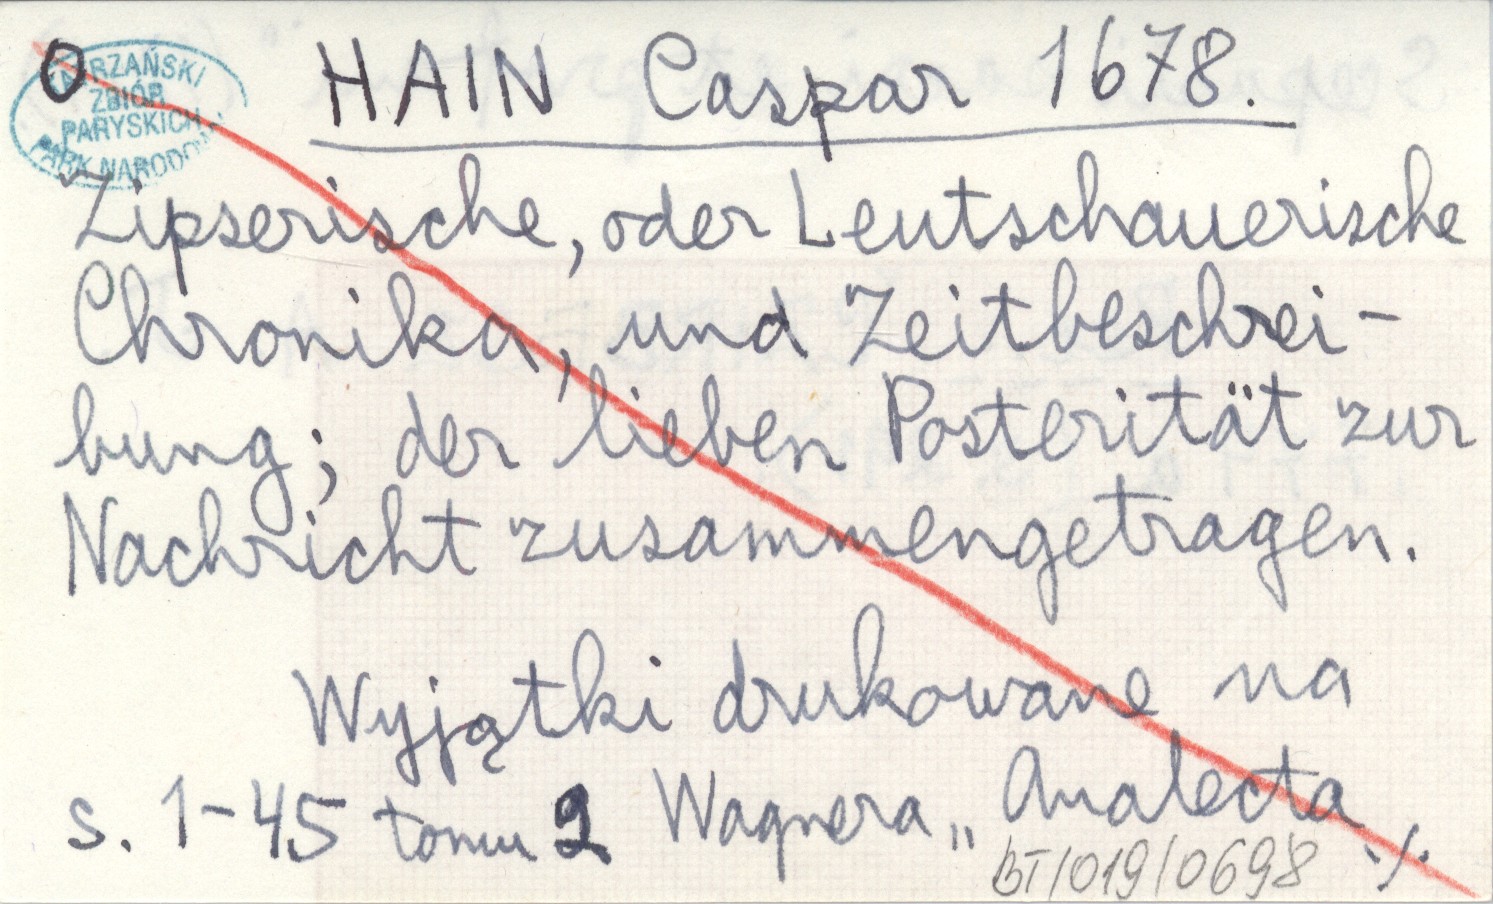 O
TATRZAŃSKI
ZBIÓR
PARYSKICH
PARK NARODOWY
HAIN Caspar 1678.
Zipserische, oder Leutschauerische
Chronika, und Zeitbeschrei-
bung; der lieben Posterität zur
Nachricht zusammengetragen.
Wyjątki drukowane na
s. 1-45 tomu 2 Wagnera „Analecta
./.
BT/019/0698